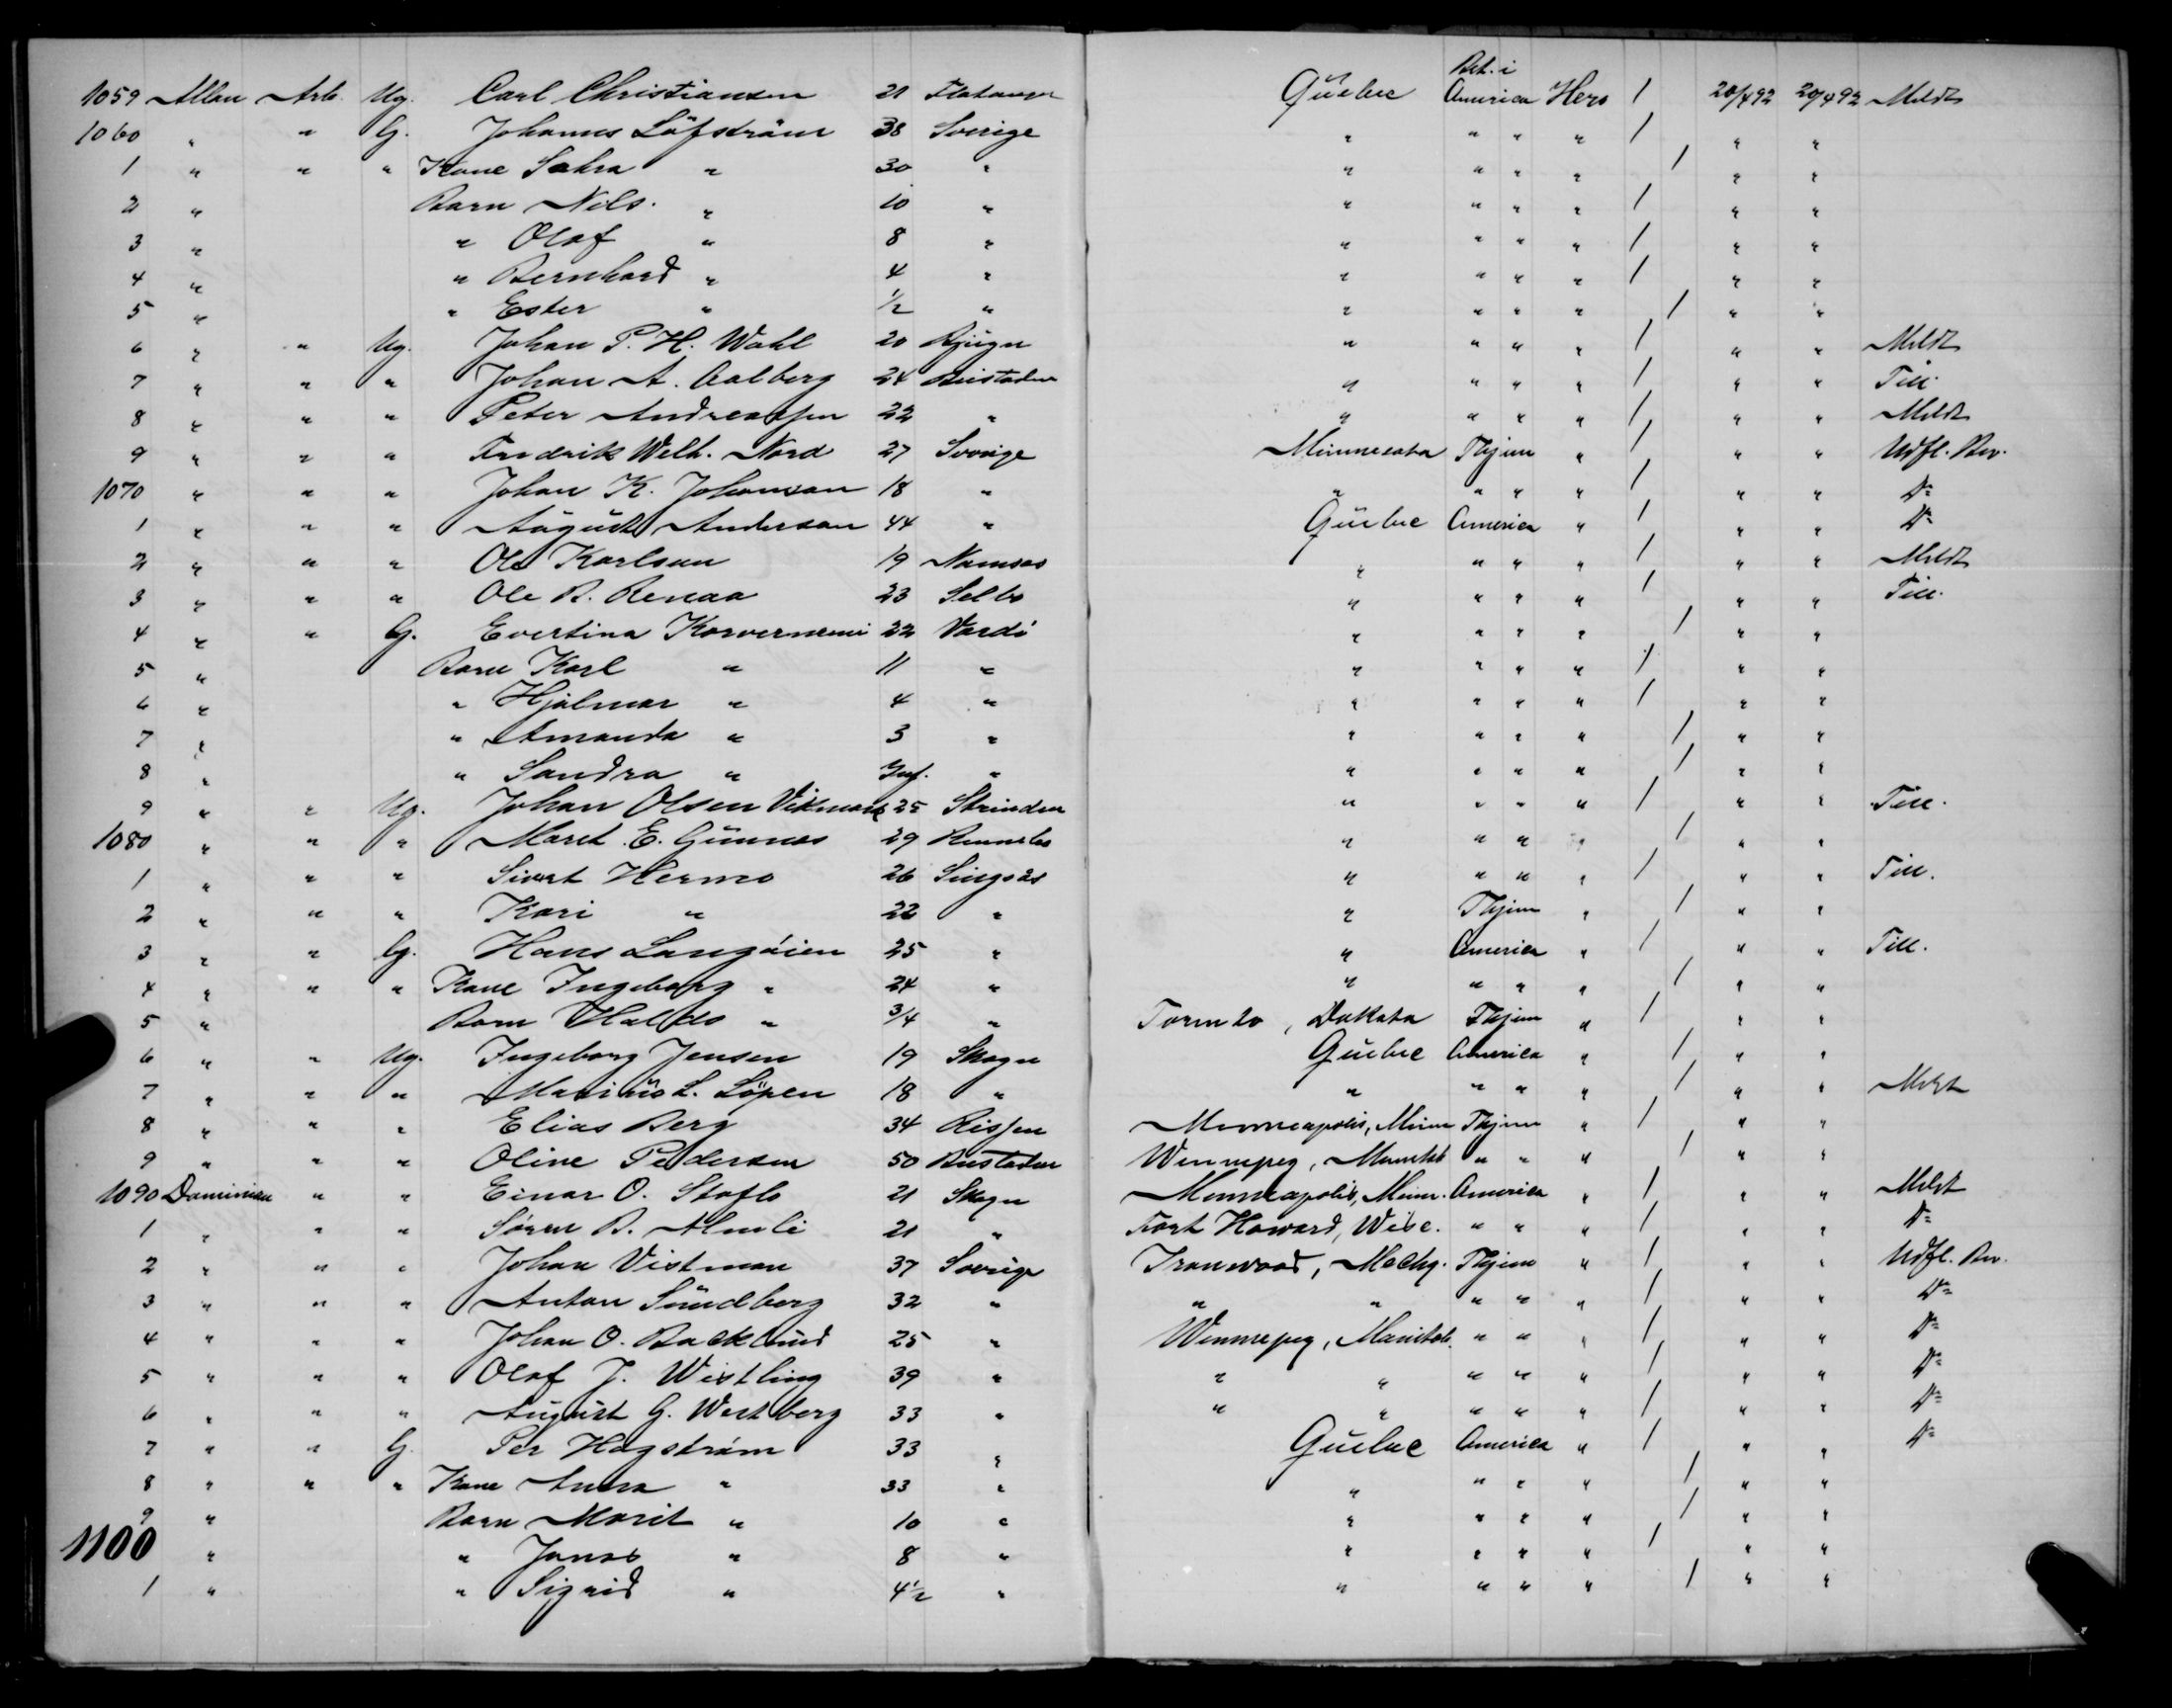 Bet. i
1059 Allan Arb. Ug. Carl Christiansen 21 Flatanger Quebec America Hero / 20/4 92 20/4 92 Meldt
1060 " " G. Johannes Löfström 38 Sverige " " " " / " "
1 " " " Kone Sahra " 30 " " " " " / " "
2 " Barn Nils " 10 " " " " " / " "
3 " " Olaf " 8 " " " " " / " "
4 " " Bernhard " 4 " " " " " / " "
5 " " Ester " 1/2 " " " " " / " "
6 " " Ug. Johan P. H. Wahl 20 Bjugn " " " " / " " Meldt
7 " " " Johan A. Aalberg 24 Beistaden " " " " / " " Till.
8 " " " Peter Andreassen 22 " " " " " / " " Meldt
9 " " " Fredrik Welh. Nord 27 Sverige Minnesota Thjem " / " " Udfl. Bev.
1070 " " " Johan K. Johansson 18 " " " " " / " " Do
1 " " " August Anderson 44 " Quebec America " / " " Do
2 " " " Ole Karlsen 19 Namsos " " " " / " " Meldt
3 " " " Ole B. Renaa 23 Selbo " " " " / " " Till.
4 " " G. Evertina Korverniemi 22 Vardö " " " " / " "
5 " Barn Karl " 11 " " " " " / " "
6 " " Hjalmar " 4 " " " " " / " "
7 " " Amanda " 3 " " " " " / " "
8 " " Sandra " Inf. " " " " " / " "
9 " " Ug. Johan Olsen Vikmark 25 Strinden " " " " / " " Till.
1080 " " " Marit E. Gunnes 29 Rennebo " " " " / " "
1 " " " Sivert Hermo 26 Singsås " " " " / " " Till.
2 " " " Kari " 22 " " Thjem " / " "
3 " " G. Hans Langöien 25 " " America " / " " Till.
4 " " " Kone Ingeborg " 24 " " " " " / " "
5 " Barn Haldo " 3/4 " Toronto, Dakota Thjem " / " "
6 " " Ug. Ingeborg Jensen 19 Skogn Quebec America " / " "
7 " " " Marius L. Löpen 18 " " " " " / " " Meldt
8 " " " Elias Berg 34 Rissen Minneapolis, Minn Thjem " / " "
9 " " " Oline Pedersen 50 Beistaden Winnepeg, Manitob " " " / " "
1090 Dominion " " Einar O. Stoflo 21 Skogn Minneapolis, Minn. America " / " " Meldt
1 " " " Sören B. Almli 21 " Fort Howard, Wisc. " " " / " " Do
2 " " " Johan Vistman 37 Sverige Ironwood, Mechg. Thjem " / " " Udfl. Bev.
3 " " " Anton Sundberg 32 " " " " " " / " " Do
4 " " " Johan O. Backlund 25 " Winnepeg, Manitob. " " " / " " Do
5 " " " Olof J. Wistling 39 " " " " " " / " " Do
6 " " " August G. Westberg 33 " " " " " " / " " Do
7 " " G. Per Hagström 33 " Quebec America " / " " Do
8 " " " Kone Anna " 33 " " " " " / " "
9 " Barn Marit " 10 " " " " " / " "
1100 " " Jonas " 8 " " " " " / " "
1 " " Sigrid " 4 1/2 " " " " " / " "